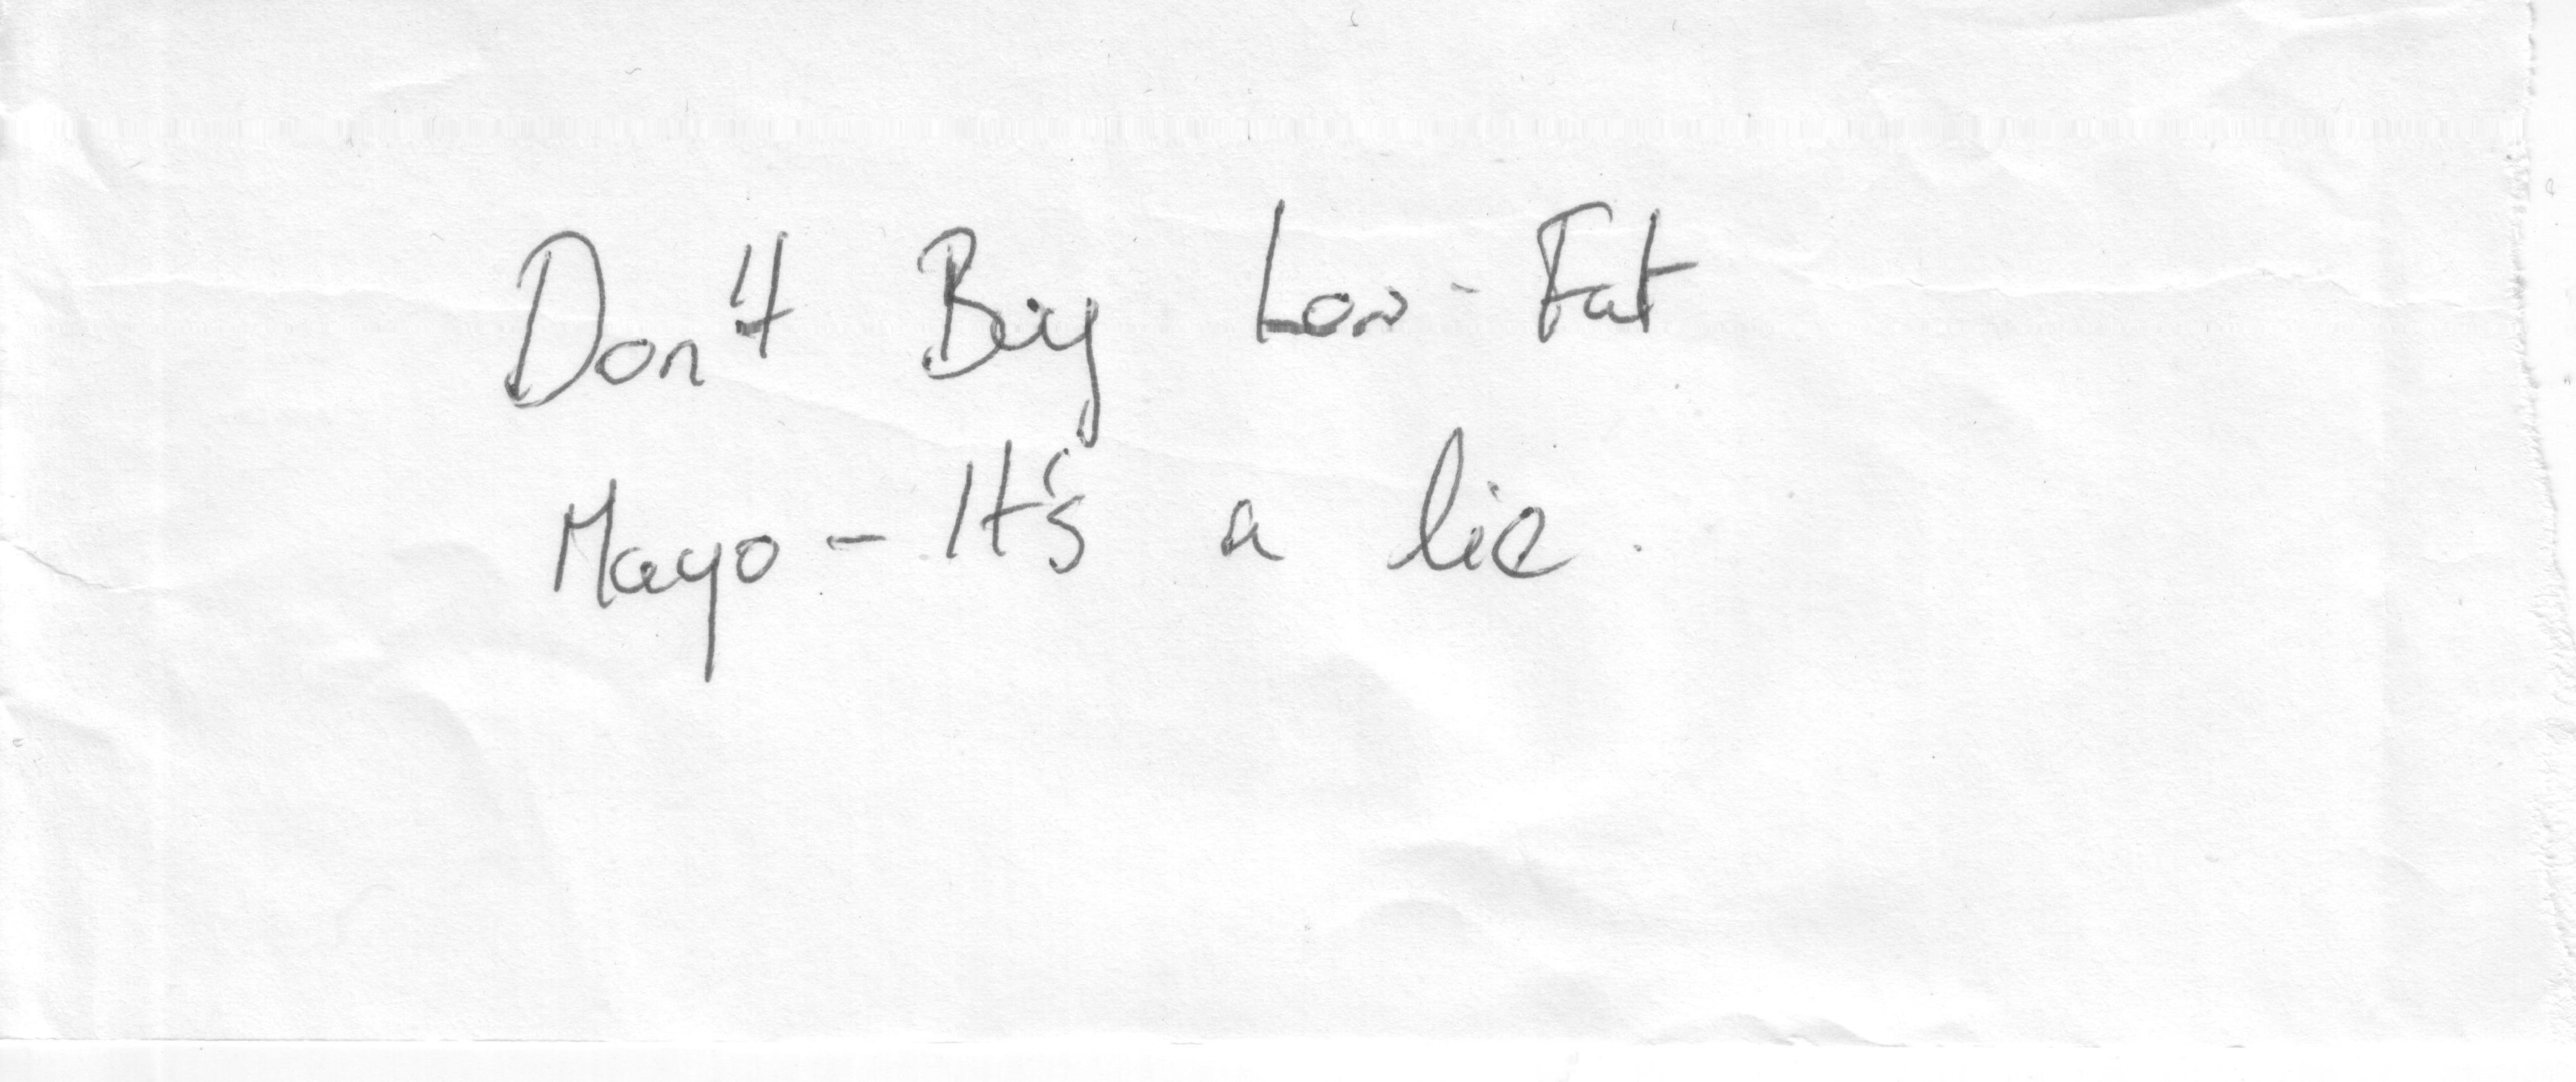 Don't Buy Low-Fat
Mayo - It's a lie.